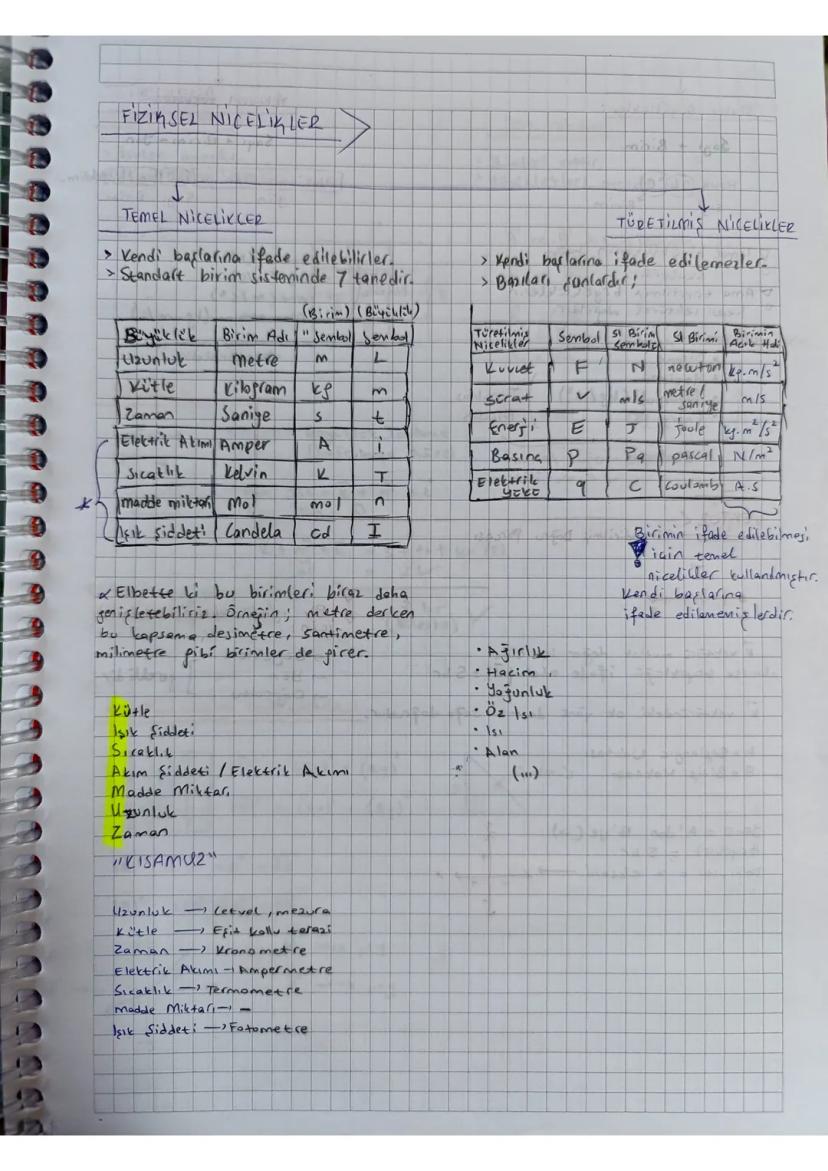 FİZİKSEL NİCELİKLER
TEMEL NİCELİKLER
> Kendi başlarına ifade edilebilirler.
> Standart birim sisteminde 7 tanedir.
(Birim) (Büyüklük)
Büyüklük Birim Adı "Sembol Sembol
Uzunluk metre m L
Kütle Kilogram kg m
Zaman Saniye s t
Elektrik Akımı Amper A i
Sıcaklık Kelvin K T
madde miktarı Mol mol n
Işık Şiddeti Candela cd I
* Elbette ki bu birimleri biraz daha
genişletebiliriz. Örneğin; metre derken
bu kapsama desimetre, santimetre,
milimetre gibi birimler de girer.
Kütle
Işık Şiddeti
Sıcaklık
Akım Şiddeti / Elektrik Akımı
Madde Miktarı
Uzunluk
Zaman
"KISAMUZ"
Uzunluk → Cetvel, mezura
Kütle → Eşit kollu terazi
Zaman → Kronometre
Elektrik Akımı → Ampermetre
Sıcaklık → Termometre
Madde Miktarı → -
Işık Şiddeti → Fotometre
TÜRETİLMİŞ NİCELİKLER
> Kendi başlarına ifade edilemezler.
> Bazıları şunlardır;
Türetilmiş Nicelikler Sembol SI Birim Sembolü SI Birimi Birimin Açık Hali
Kuvvet F N newton kg.m/s²
Sürat v m/s metre/saniye m/s
Enerji E J joule kg.m²/s²
Basınç P Pa pascal N/m²
Elektrik yükü q C Coulomb A.s
Birimin ifade edilebilmesi
! için temel
nicelikler kullanılmıştır.
Kendi başlarına
ifade edilememişlerdir.
• Ağırlık
• Hacim
• Yoğunluk
• Öz Isı
• Isı
• Alan
(...)